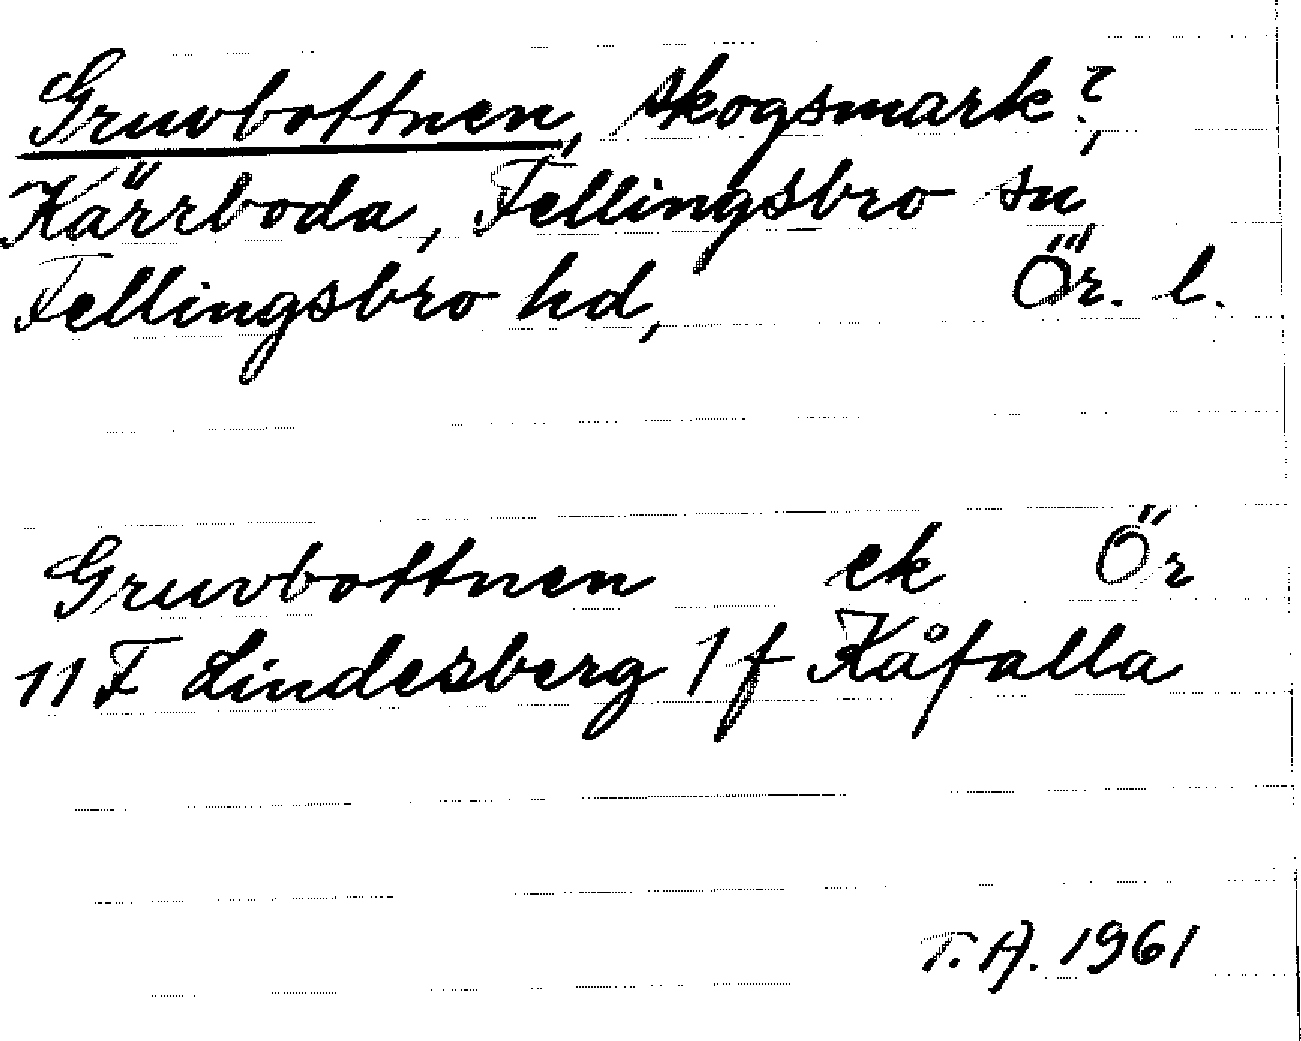 Gruvbottnen, skogsmark?,
Kärrboda, Fellingsbro sn
Fellingsbro hd, Ör. l.
Gruvbottnen ek Ör
11 F Lindesberg 1 f Kåfalla
T. A. 1961